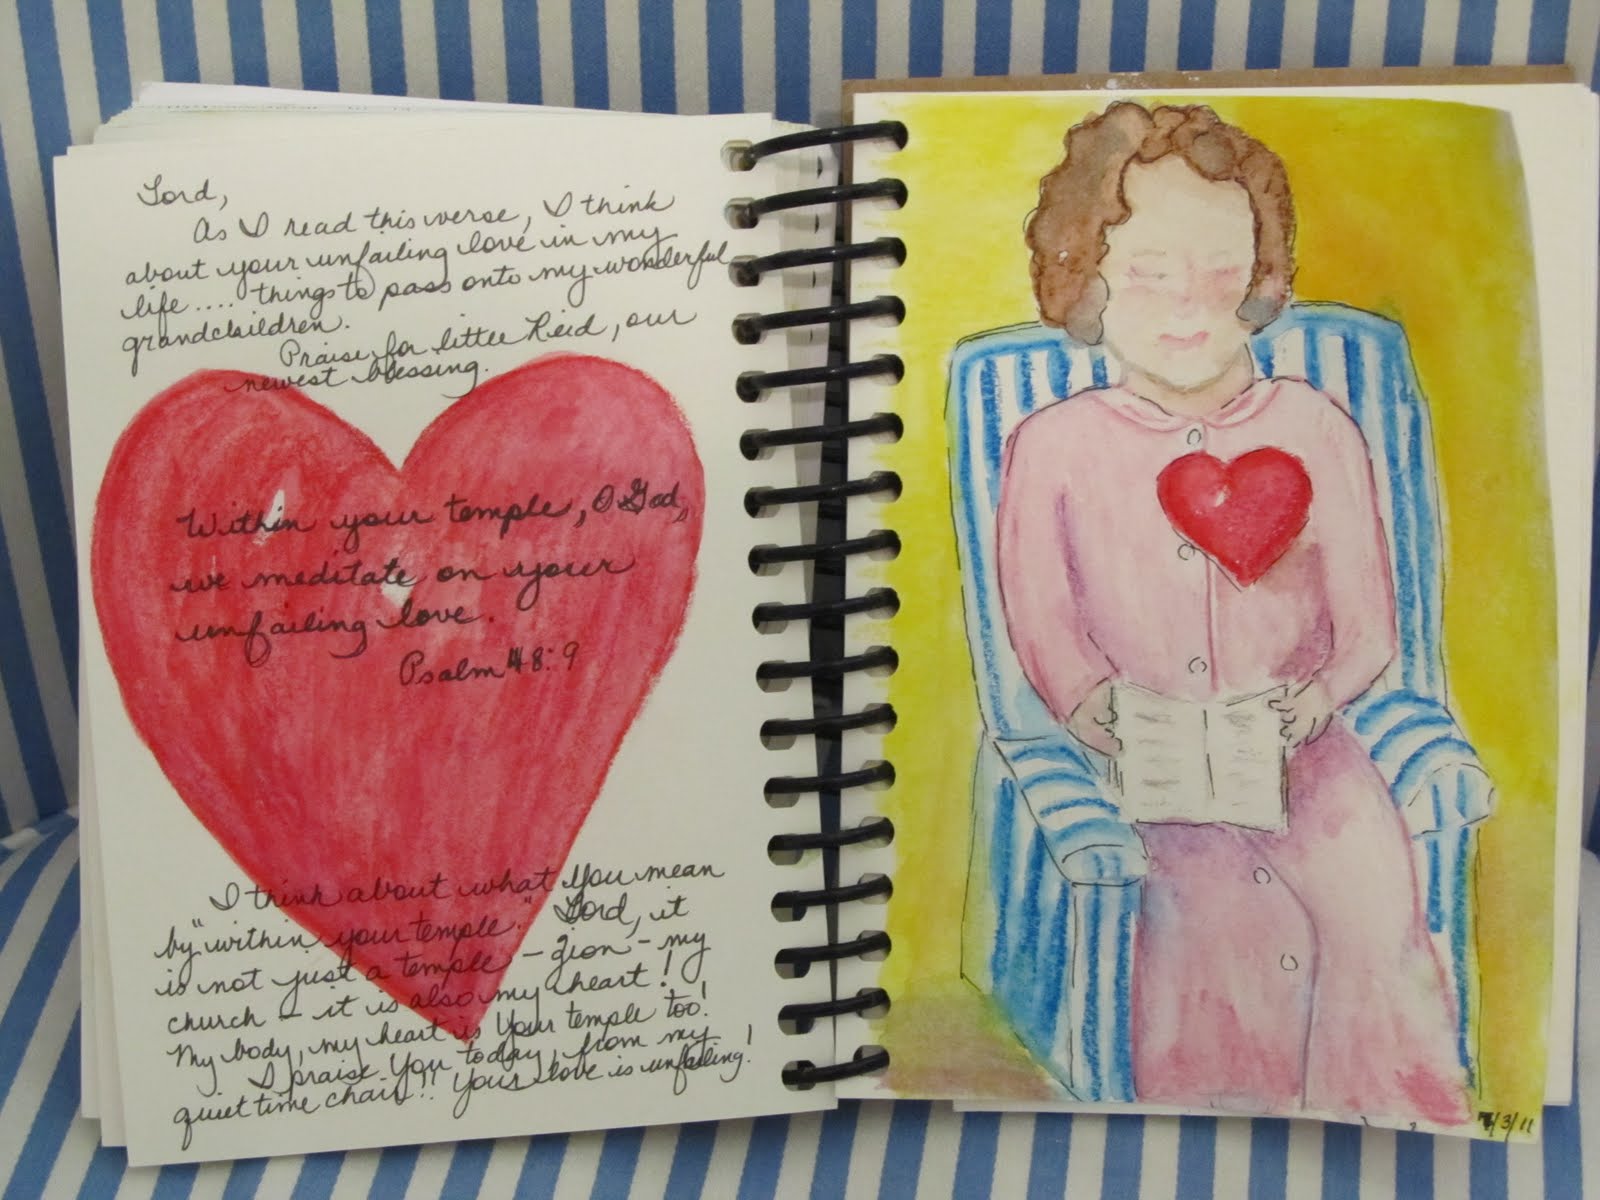 Lord,
As I read this verse, I think
about your unfailing love in my
life .... things to pass onto my wonderful
grandchildren.
Praise for little Reid, our
newest blessing.
Within your temple, O God,
we meditate on your
unfailing love.
Psalm 48:9
I think about what You mean
by "within your temple." Lord, it
is not just a temple - Zion - my
church - it is also my heart!
My body, my heart is Your temple too!
I praise You today, from my
quiet time chair!! Your love is unfailing!
7/3/11